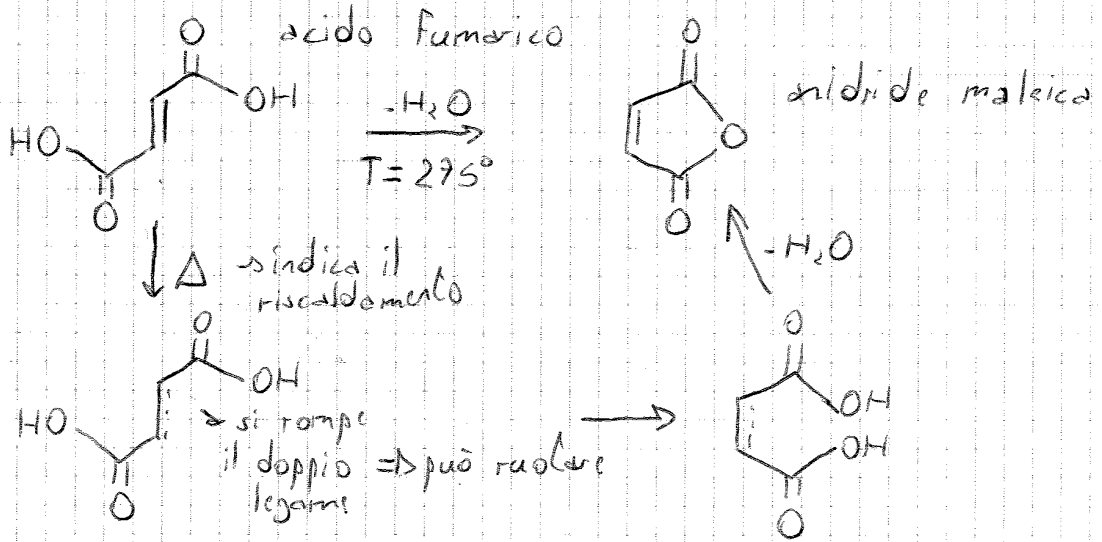 acido fumarico
O
OH
HO
O
-H₂O
T = 275°
O
O
O
anidride maleica
Δ → indica il
riscaldamento
-H₂O
O
OH
HO
O
→ si rompe
il doppio => può ruotare
legame
O
OH
OH
O